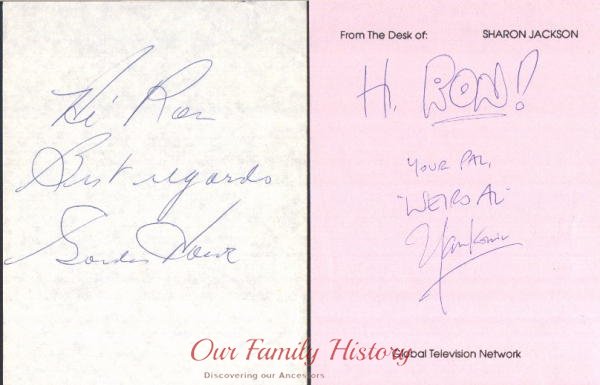 Hi Ron
Best regards
Gordie Howe
From The Desk of: SHARON JACKSON
Hi, RON!
YOUR PAL,
"WEIRD AL"
Yankovic
Global Television Network
Our Family History
Discovering our Ancestors